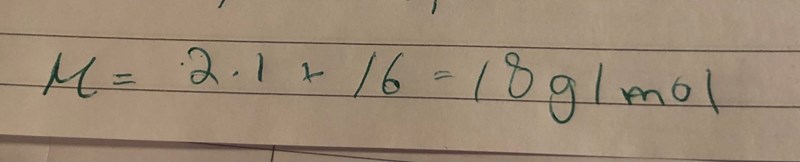 M = 2.1 + 16 = 18 g/mol